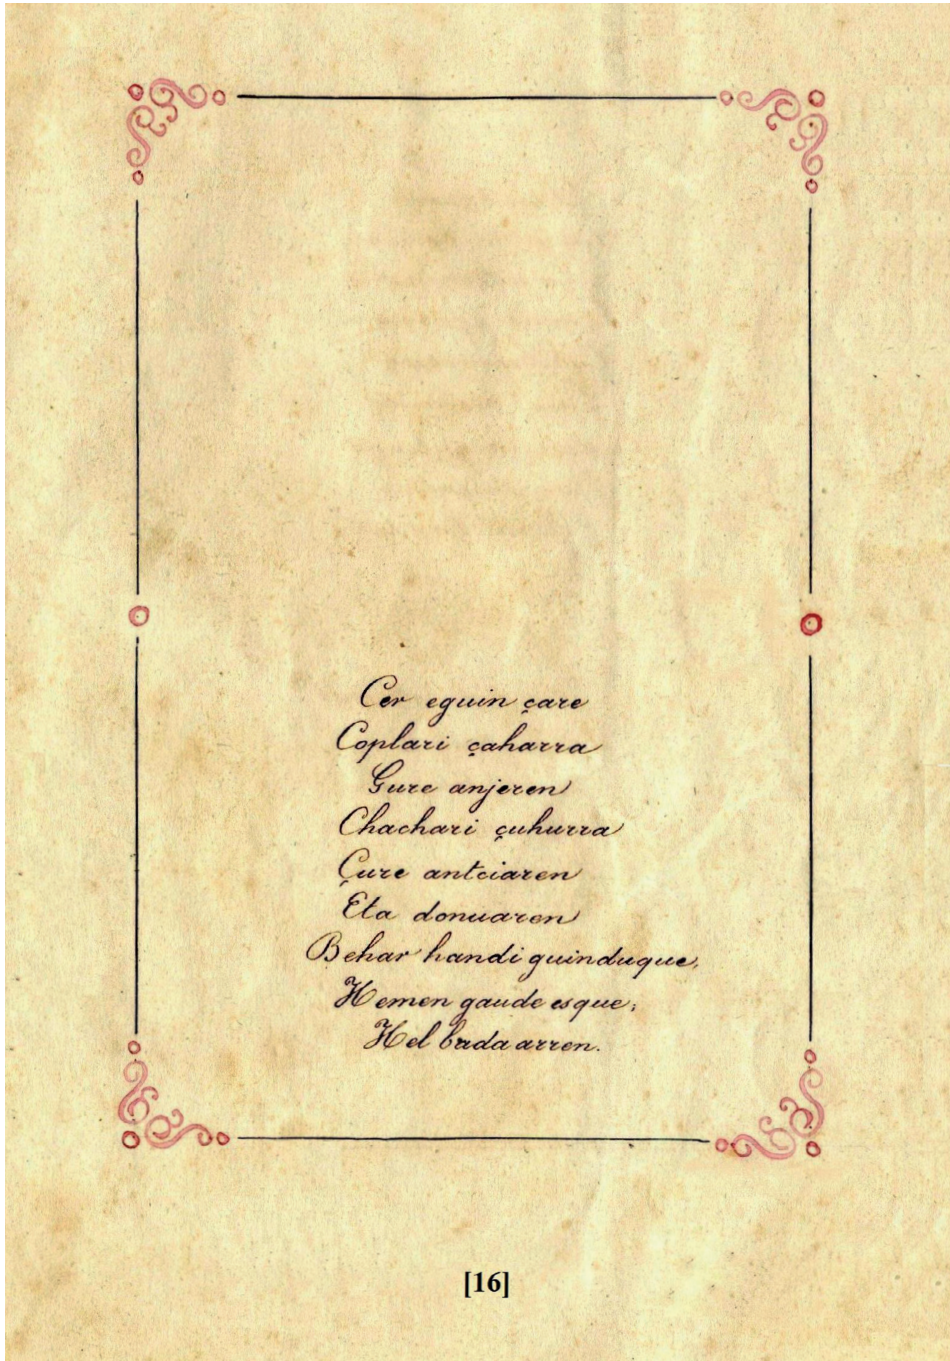 Cer eguin çare
Coplari çaharra
Gure anjeren
Chachari çuhurra
Çure antciaren
Eta donuaren
Behar handi guinduque,
Hemen gaude esque;
Hel bada arren.
[16]